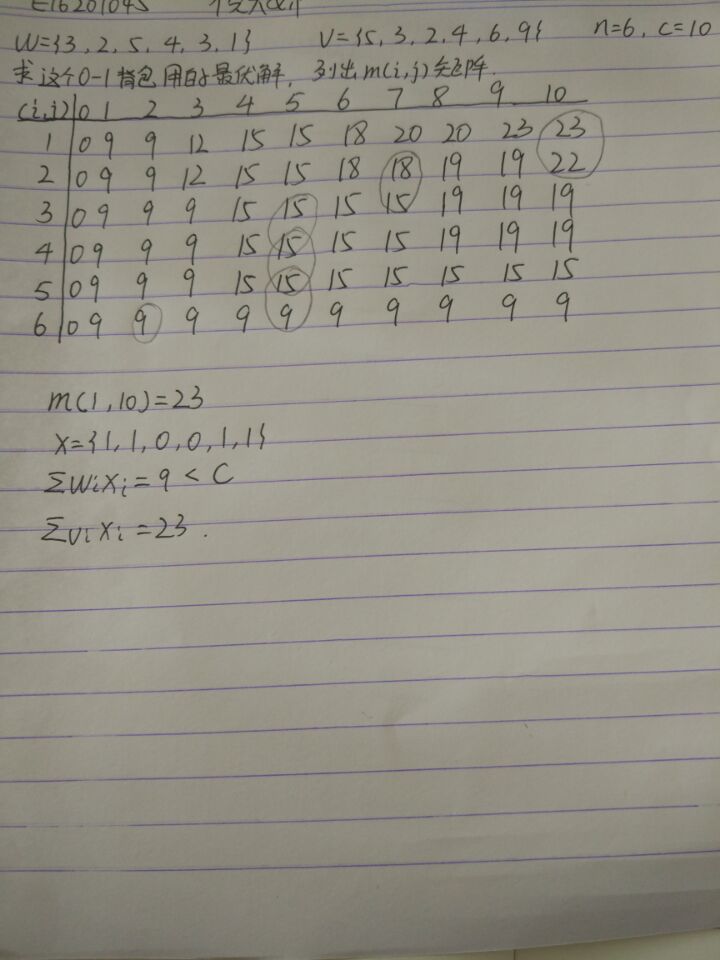 E16201045
W={3, 2, 5, 4, 3, 1} V={5, 3, 2, 4, 6, 9} n=6, c=10
求这个0-1背包用的最优解, 列出m(i,j)矩阵.
(i,j) 0 1 2 3 4 5 6 7 8 9 10
1 0 9 9 12 15 15 18 20 20 23 23
2 0 9 9 12 15 15 18 18 19 19 22
3 0 9 9 9 15 15 15 15 19 19 19
4 0 9 9 9 15 15 15 15 19 19 19
5 0 9 9 9 15 15 15 15 15 15 15
6 0 9 9 9 9 9 9 9 9 9 9
m(1,10)=23
X={1,1,0,0,1,1}
ΣWiXi=9<C
ΣviXi=23.